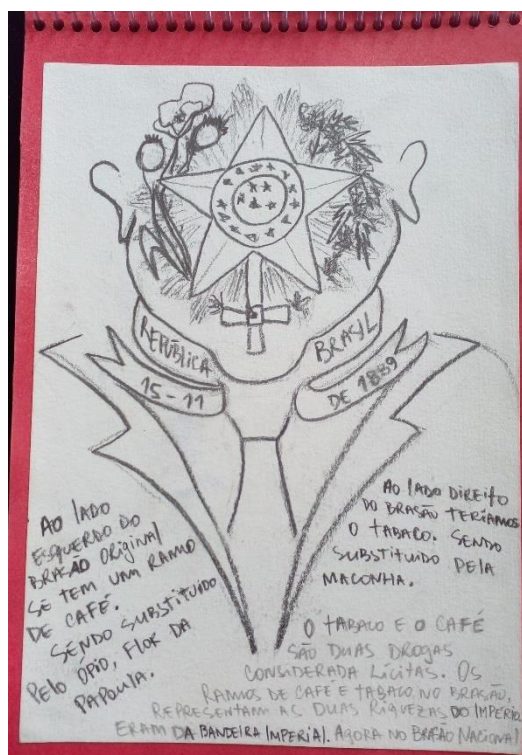 REPÚBLICA
BRASIL
15-11
DE 1889
AO LADO
ESQUERDO DO
BRASÃO ORIGINAL
SE TEM UM RAMO
DE CAFÉ.
SENDO SUBSTITUIDO
PELO ÓPIO, FLOR DA
PAPOULA.
AO LADO DIREITO
DO BRASÃO TERÍAMOS
O TABACO. SENDO
SUBSTITUIDO PELA
MACONHA.
O TABACO E O CAFÉ
SÃO DUAS DROGAS
CONSIDERADA LÍCITAS. OS
RAMOS DE CAFÉ E TABACO NO BRASÃO,
REPRESENTAM AS DUAS RIQUEZAS DO IMPÉRIO
ERAM DA BANDEIRA IMPERIAL. AGORA NO BRASÃO NACIONAL